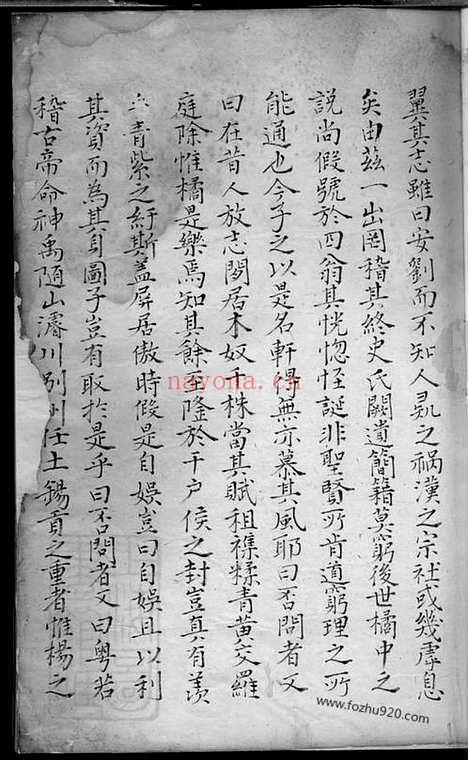 翼其志雖曰安劉而不知人彘之禍漢之宗社或幾虖息
矣由茲一出罔稽其終史氏闕遺簡籍莫窮後世橘中之
說尚假號於四翁其恍惚怪誕非聖賢所肯道窮理之所
能通也今子之以是名軒得無亦慕其風耶曰否問者又
曰在昔人放志閑居木奴千株當其賦租襍糅青黃交羅
庭除惟橘是樂焉知其餘至隆於千戶侯之封豈真有羨
青紫之紆斯蓋屏居傲時假是自娛豈曰自娛且以利
其資而為其身圖子豈有取於是乎曰否問者又曰粵若
稽古帝命神禹隨山濬川別州任土錫貢之重者惟楊之
nayona.cn
www.fozhu920.com